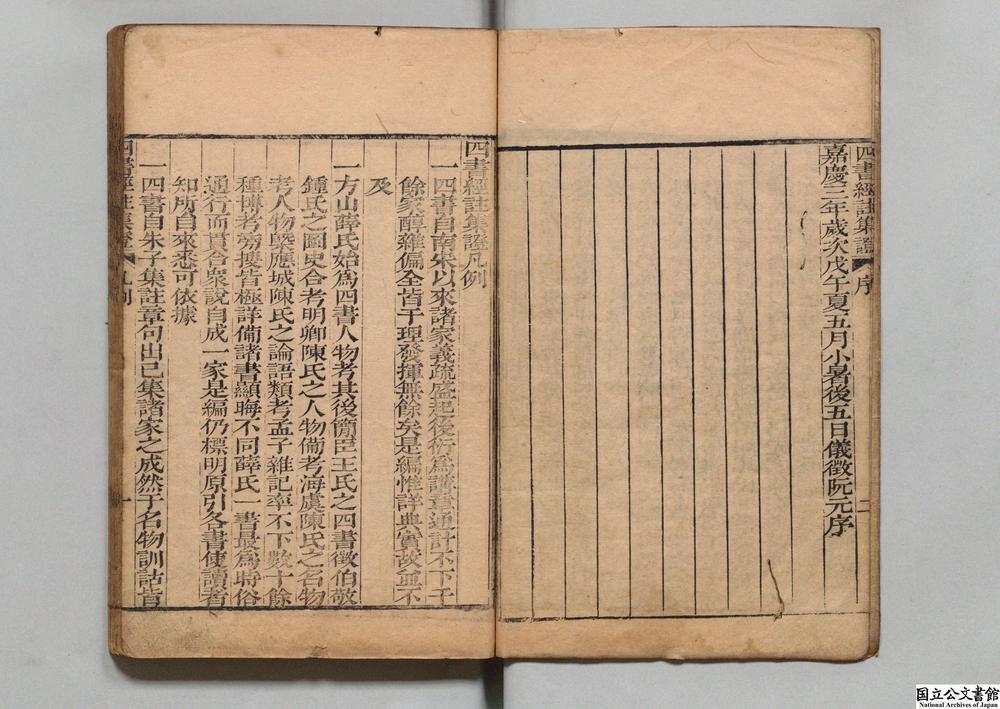 四書經註集證 序 二
嘉慶三年歲次戊午夏五月小暑後五日儀徵阮元序
四書經註集證凡例
一四書自南宋以來諸家義疏盛起後衍為講章通計不下千
餘家醇雜偏全皆于理發揮無餘矣是編惟詳典實故並不
及
一方山薛氏始為四書人物考其後簡臣王氏之四書徵伯敬
鍾氏之圖史合考明卿陳氏之人物備考海虞陳氏之名物
考人物槩應城陳氏之論語類考孟子雜記率不下數十餘
種博考旁搜皆極詳備諸書顯晦不同薛氏一書最為時俗
通行而貫合衆說自成一家是編仍標明原引各書使讀者
知所自來悉可依據
一四書自朱子集註章句出已集諸家之成然于名物訓詁皆
四書經註集證 凡例 一
国立公文書館
National Archives of Japan